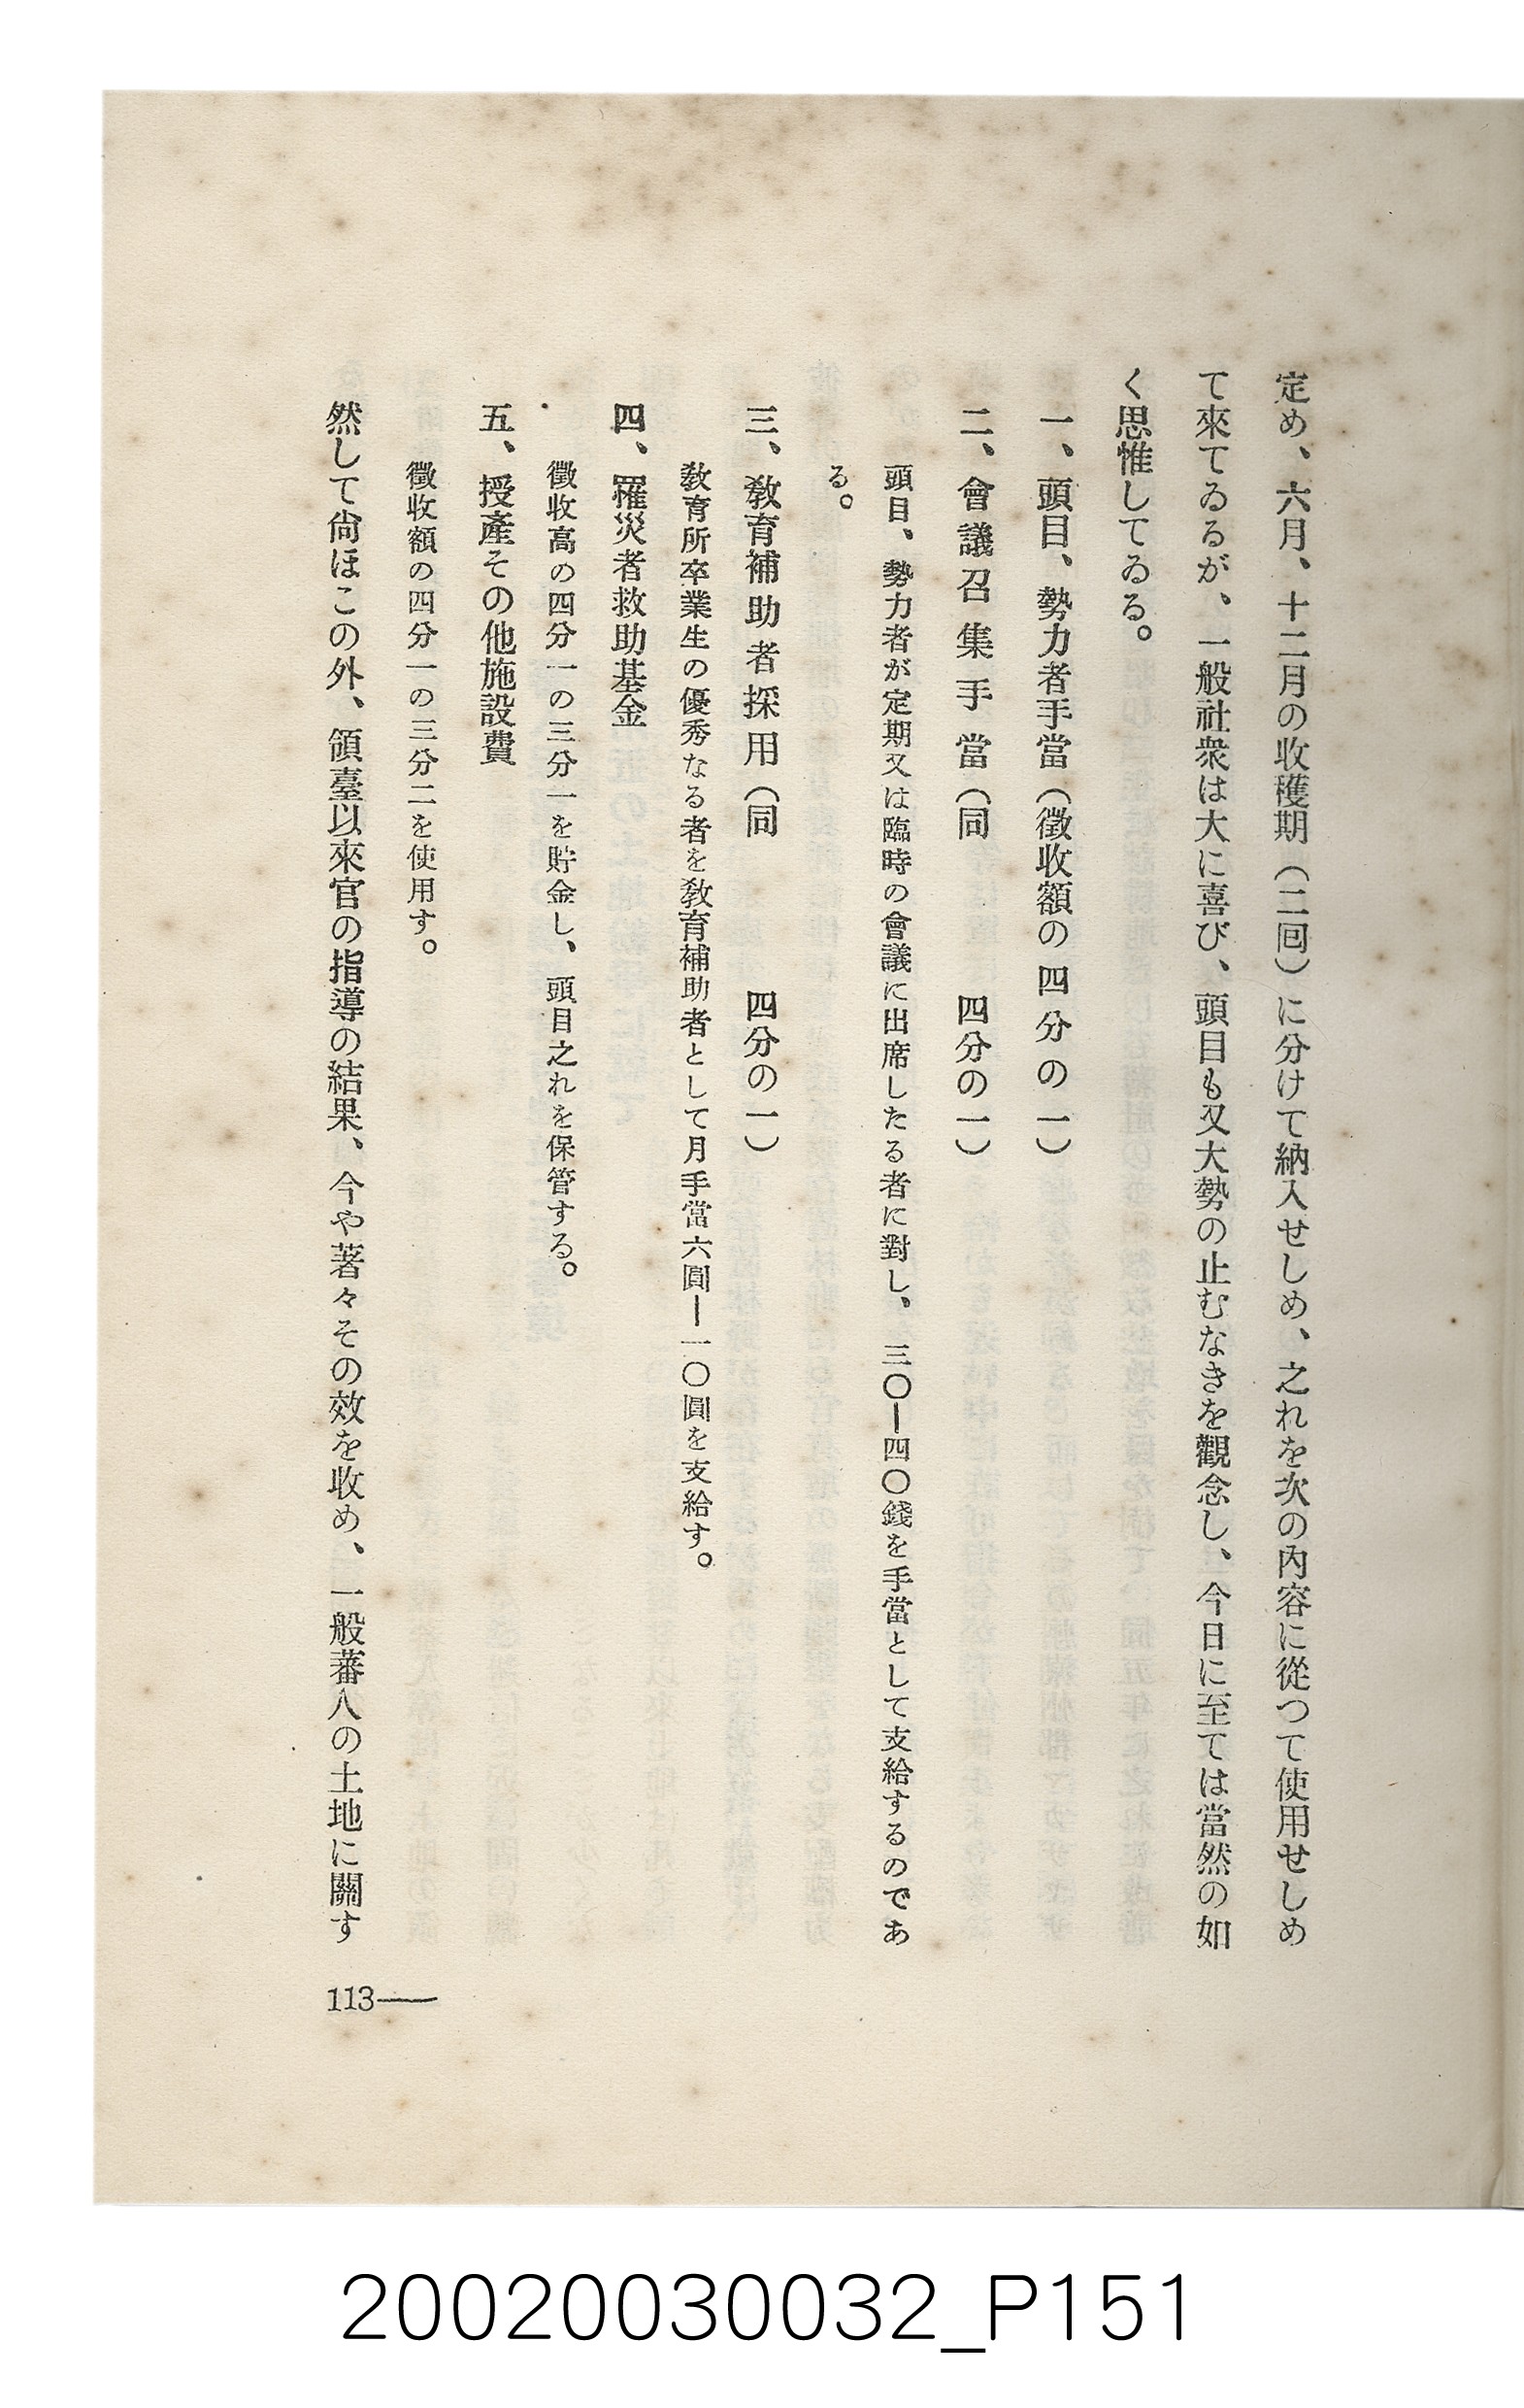 定め、六月、十二月の收穫期（二囘）に分けて納入せしめ、之れを次の內容に從つて使用せしめ
て來てゐるが、一般社衆は大に喜び、頭目も又大勢の止むなきを觀念し、今日に至ては當然の如
く思惟してゐる。
一、頭目、勢力者手當（徵收額の四分の一）
二、會議召集手當（同　四分の一）
頭目、勢力者が定期又は臨時の會議に出席したる者に對し、三〇―四〇錢を手當として支給するのであ
る。
三、敎育補助者採用（同　四分の一）
敎育所卒業生の優秀なる者を敎育補助者として月手當六圓―一〇圓を支給す。
四、罹災者救助基金
徵收高の四分一の三分一を貯金し、頭目之れを保管する。
五、授產その他施設費
徵收額の四分一の三分二を使用す。
然して尙ほこの外、領臺以來官の指導の結果、今や著々その效を收め、一般蕃人の土地に關す
113―
20020030032_P151